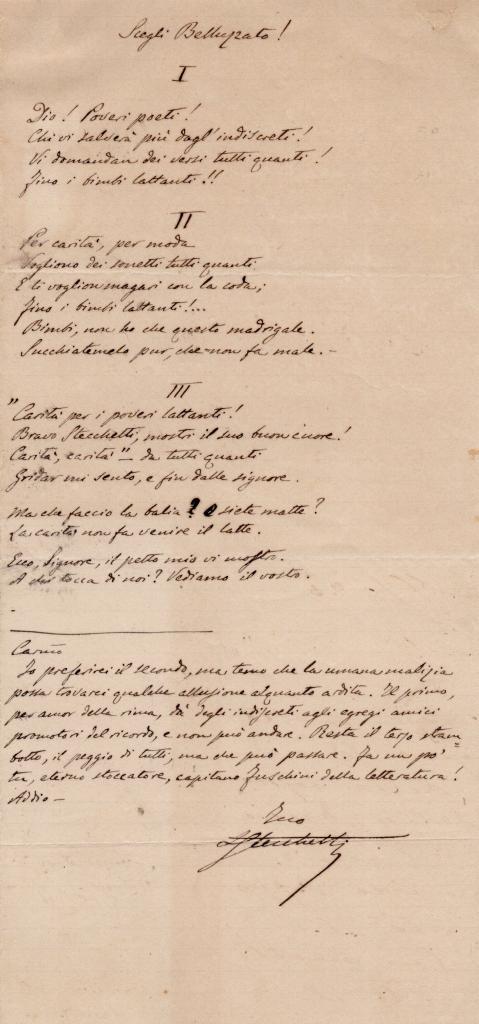 Scegli Bellupato!
I
Dio! Poveri poeti!
Chi vi salverà più dagl'indiscreti!
Vi domandan dei versi tutti quanti!
Fino i bimbi lattanti!!
II
Per carità, per moda
Vogliono dei sonetti tutti quanti
E li voglion magari con la coda;
Fino i bimbi lattanti!...
Bimbi, non ho che questo madrigale.
Succhiatemelo pur, che non fa male. -
III
"Carità per i poveri lattanti!
Bravo Stecchetti, mostri il suo buon cuore!
Carità, carità" - da tutti quanti
Gridar mi sento, e fin dalle signore.
Ma che faccio la balia? O siete matte?
La carità non fa venire il latte.
Ecco, Signore, il petto mio vi mostro.
A chi tocca di noi? Vediamo il vostro.
Carmo
Io preferirei il secondo, ma temo che la umana malizia
possa trovarci qualche allusione alquanto ardita. Il primo,
per amor della rima, dà degli indiscreti agli egregi amici
promotori del ricordo, e non può andare. Resta il terzo stram=
botto, il peggio di tutti, ma che può passare. Fa un po'
tu, eterno stoccatore, capitano Fuschini della letteratura!
Addio -
Tuo
LStecchetti